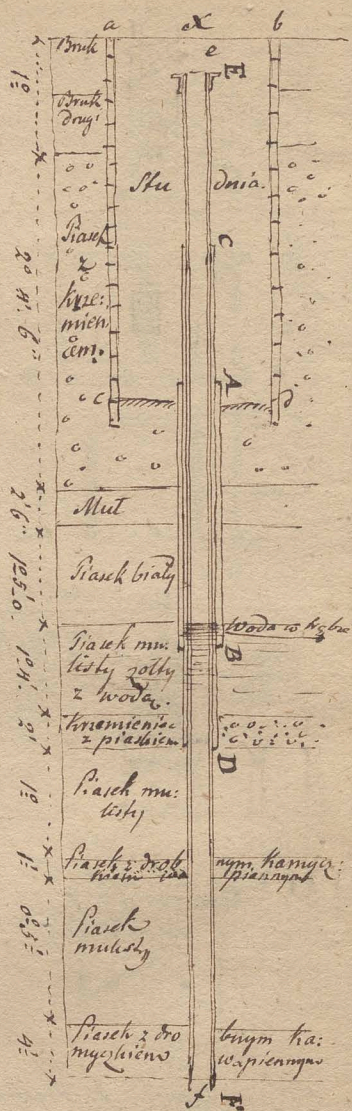 a X b
e
E
Bruk
Bruk
drugi
Stu dnia.
C
Piasek
z
krze:
mień
cem.
A
c d
Muł
Piasek biały
Woda w
B
Piasek mu:
listy żółty
z wodą.
Krzemieniec
z piaskiem
D
Piasek mu:
listy
Piasek z drob nym kamycz:
piennym
Piasek
mulisty
Piasek z dro bnym ka:
myczkiem wapiennym
f F
1°
2° 4' 6"
2' 6"
1° 5' 0
1° 4'
2'
1°
1'
0° 5'
4'